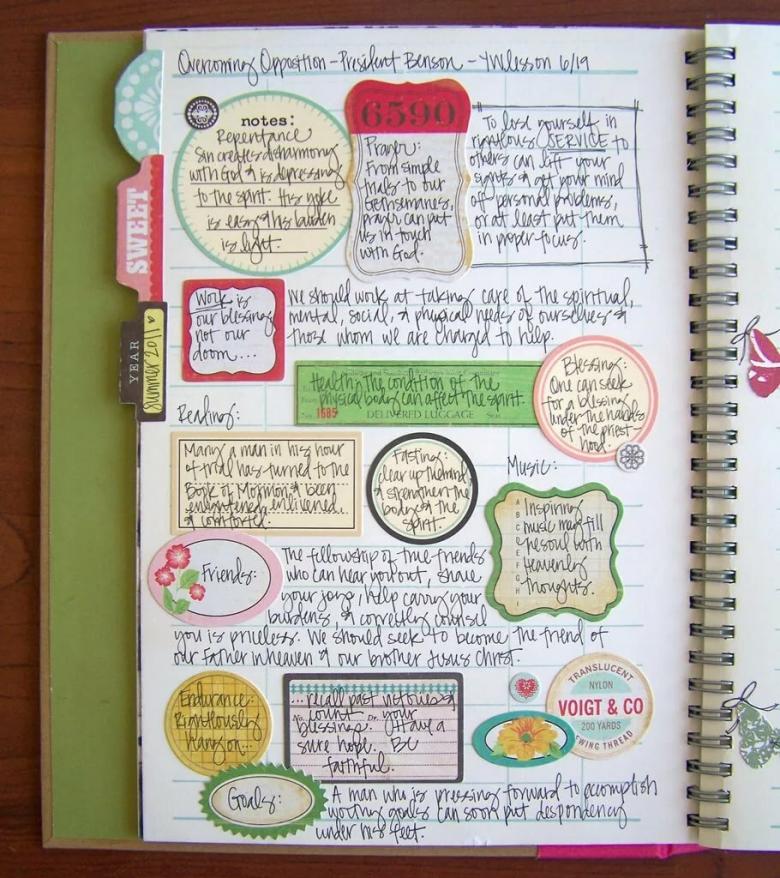 Overcoming Opposition - President Benson - YW lesson 6/19
notes:
Repentance
Sin creates disharmony
with God & is depressing
to the spirit. His yoke
is easy & his burden
is light.
6590
Prayer:
From simple
trials to our
Gethsemanes,
prayer can put
us in touch
with God.
To lose yourself in
righteous SERVICE to
others can lift your
sights & get your mind
off personal problems,
or at least put them
in proper focus.
SWEET
Work is
our blessing
not our
doom...
We should work at taking care of the spiritual,
mental, social, & physical needs of ourselves &
those whom we are charged to help.
YEAR
Summer 2011
Health: The condition of the
physical body can affect the spirit.
No. 1685 DELIVERED LUGGAGE
Blessing:
One can seek
for a blessing
under the hands
of the priest-
hood.
Reading:
Many a man in his hour
of trial has turned to the
Book of Mormon & been
enlightened, enlivened
& comforted.
Fasting:
clear up the mind
& strengthen the
body & the
spirit.
Music:
Inspiring
music may fill
the soul with
heavenly
thoughts.
A
B
C
D
E
F
G
H
I
Friends:
The fellowship of true friends
who can hear you out, share
your joys, help carry your
burdens, & correctly counsel
you is priceless. We should seek to become the friend of
our Father in heaven & our brother Jesus Christ.
Endurance:
Righteously
hang on...
...recall past victories &
count your
blessings. Have a
sure hope. Be
faithful.
TRANSLUCENT
NYLON
VOIGT & CO
200 YARDS
SEWING THREAD
Goals:
A man who is pressing forward to accomplish
worthy goals can soon put despondency
under his feet.